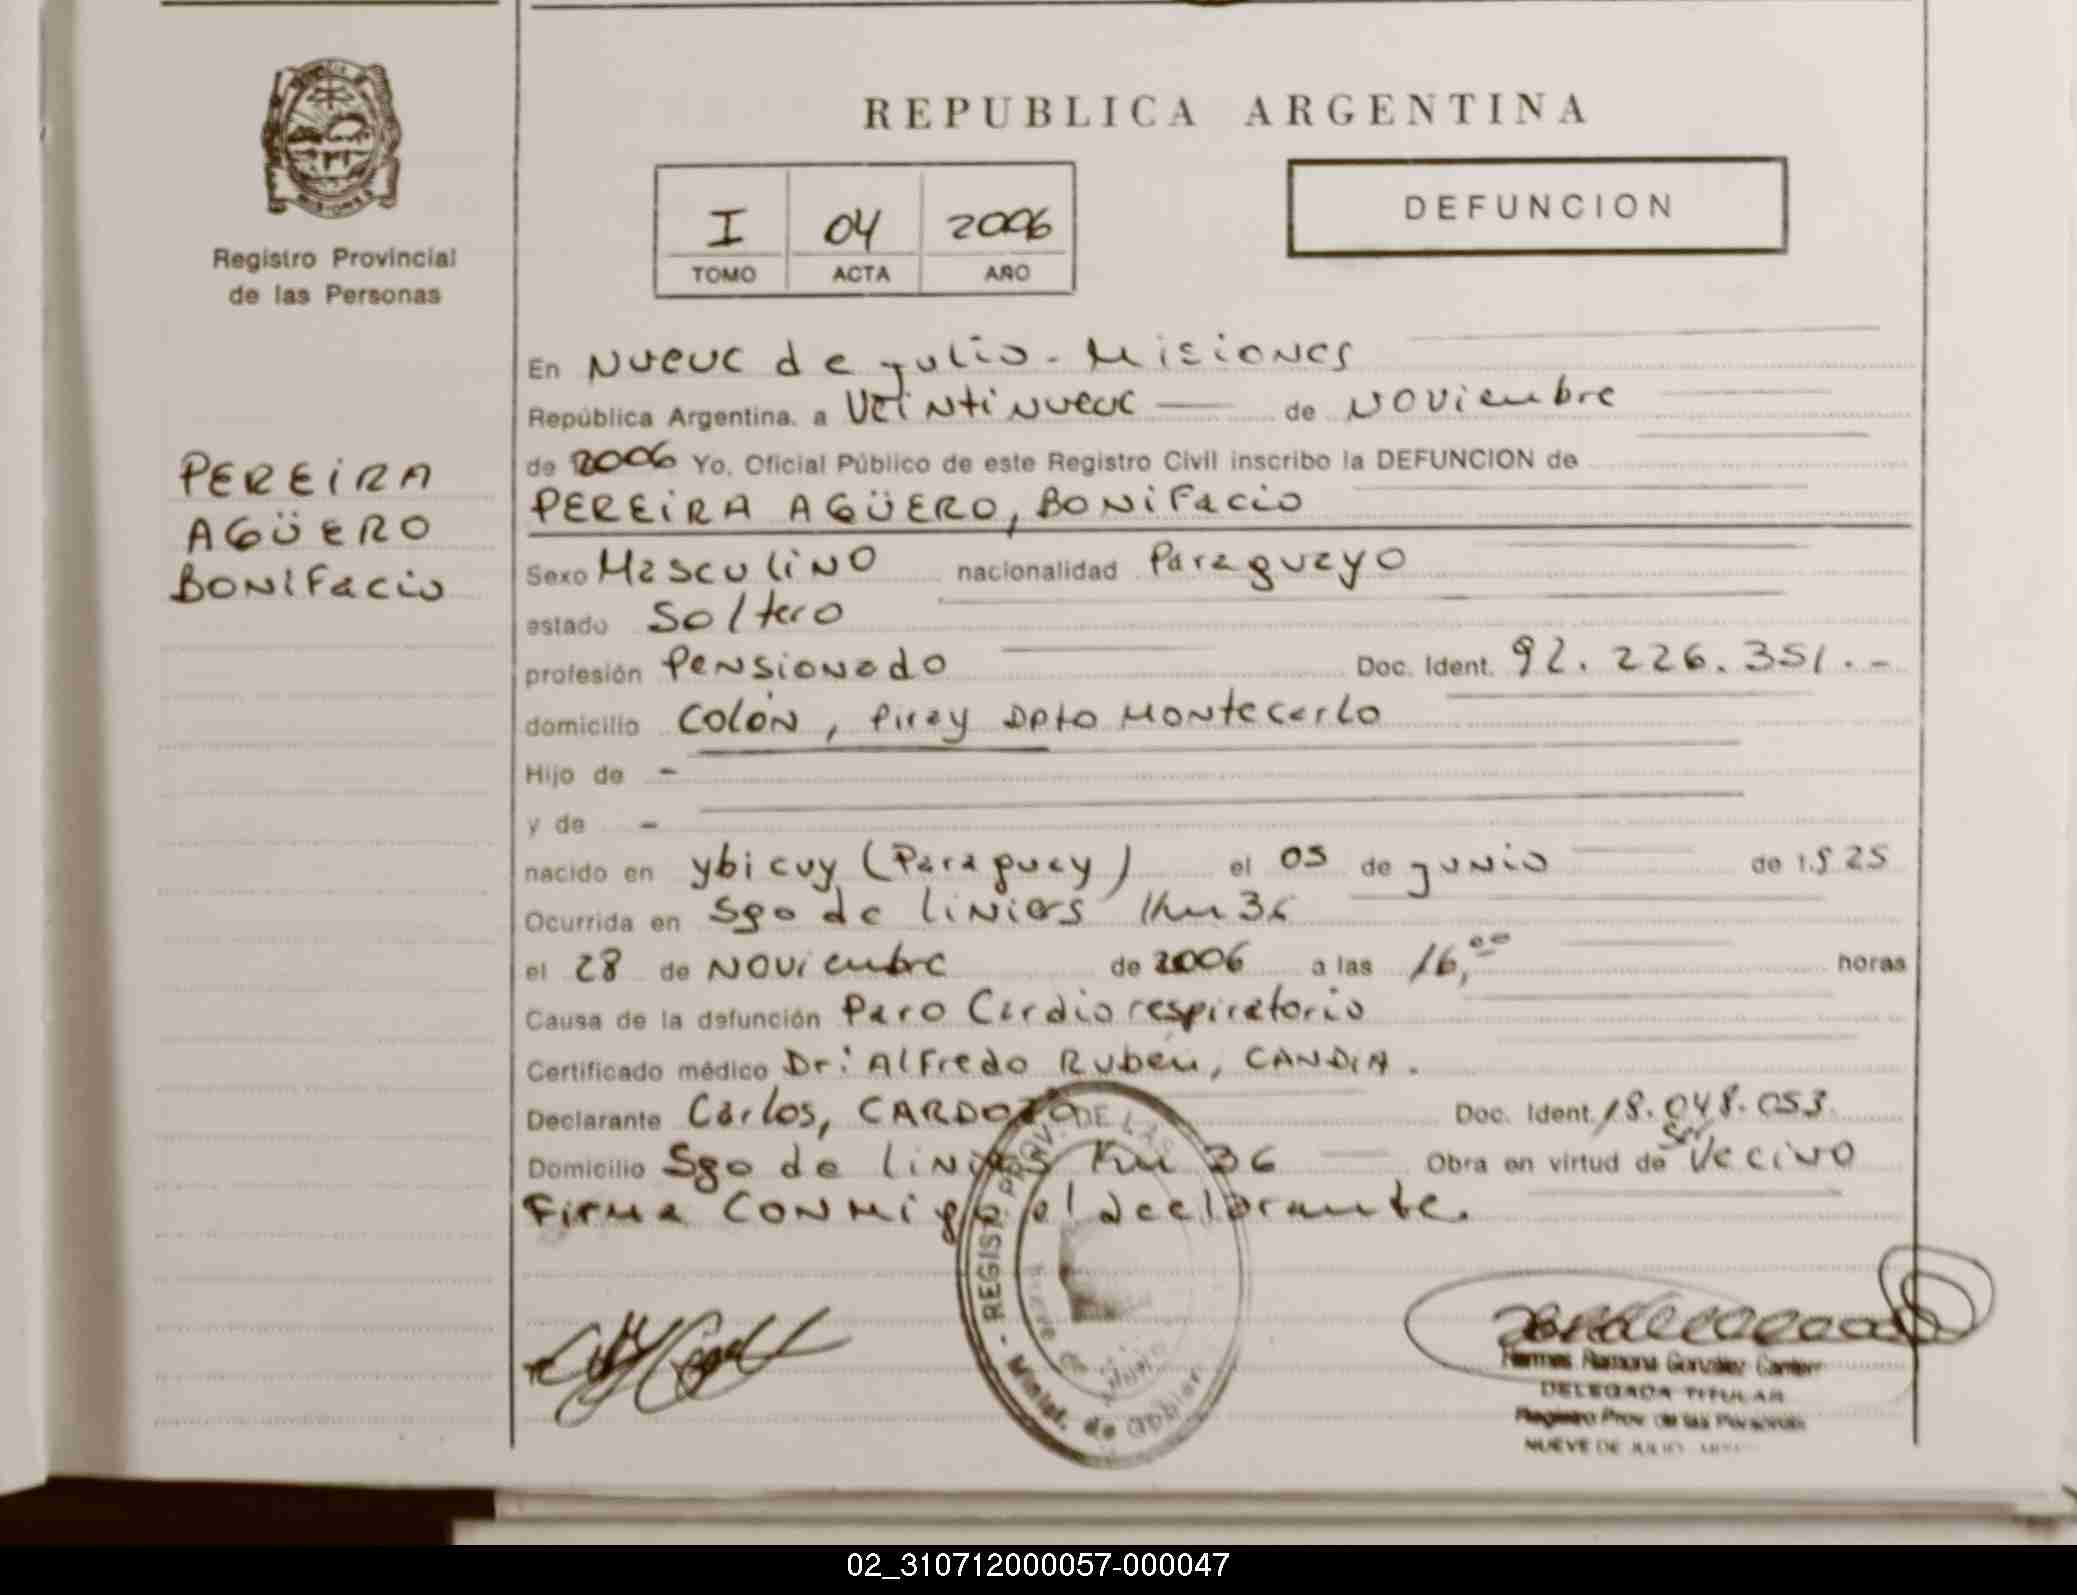 REPUBLICA ARGENTINA
I 04 2006
TOMO ACTA AÑO
DEFUNCION
Registro Provincial
de las Personas
PEREIRA
AGÜERO
BONIFacio
En Nueve de Julio - Misiones
República Argentina, a Veintinueve de Noviembre
de 2006 Yo, Oficial Público de este Registro Civil inscribo la DEFUNCION de
PEREIRA AGÜERO, BONIFacio
Sexo Masculino nacionalidad Paraguayo
estado Soltero
profesión Pensionado Doc. Ident. 92.226.351.-
domicilio Colón, Piray Dpto Montecarlo
Hijo de -
y de -
nacido en ybicuy (Paraguay) el 05 de junio de 1.925
Ocurrida en Sgo de Liniers Km 36
el 28 de Noviembre de 2006 a las 16,00 horas
Causa de la defunción Paro Cardiorespiratorio
Certificado médico Dr: Alfredo Ruben, CANDIA.
Declarante Carlos, CARDOZO Doc. Ident. 18.048.053.
Domicilio Sgo de Liniers Km 36 Obra en virtud de Ser Vecino
Firma conmigo el declarante.
REGIST. PROV. DE LAS
Minist. de Gobier.
Hermes Ramona González
DELEGADA TITULAR
Registro Prov. de las Personas
NUEVE DE JULIO
02_310712000057-000047